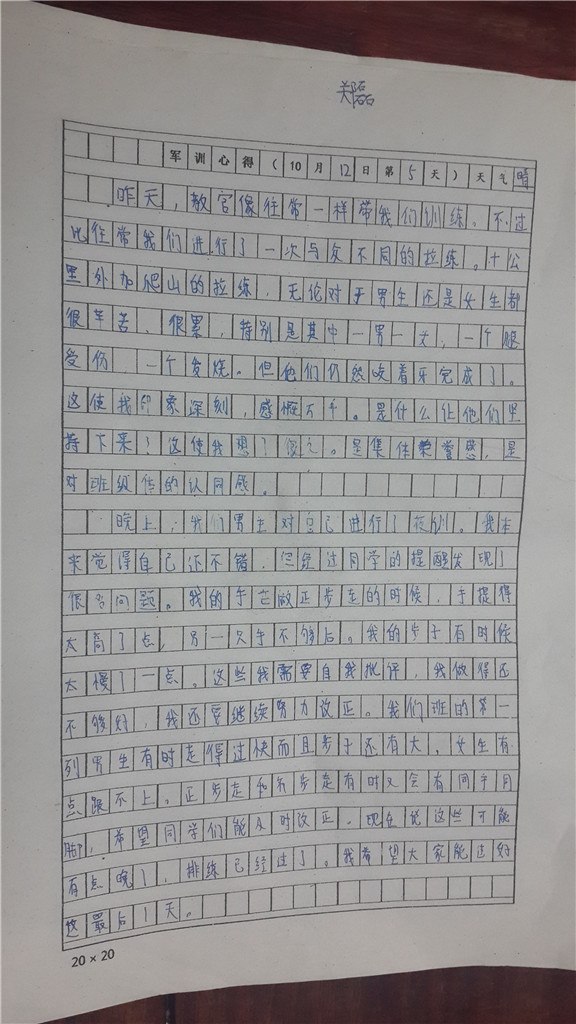 关磊
军训心得（10月12日第5天）天气晴
昨天，教官像往常一样带我们训练。不过
比往常我们进行了一次与众不同的拉练。十公
里外加爬山的拉练，无论对于男生还是女生都
很辛苦、很累，特别是其中一男一女，一个腿
受伤 一个发烧。但他们仍然咬着牙完成了。
这使我印象深刻，感慨万千。是什么让他们坚
持下来？这使我想了很久。是集体荣誉感，是
对班级体的认同感。
晚上，我们男生对自己进行了夜训。我本
来觉得自己还不错，但经过同学的提醒发现了
很多问题。我的手在做正步走的时候，手提得
太高了点，另一只手不够后。我的步子有时候
太慢了一点。这些我需要自我批评，我做得还
不够好，我还要继续努力改正。我们班的第一
列男生有时走得过快而且步子还有大，女生有
点跟不上。正步走和齐步走有时又会有同手同
脚，希望同学们能及时改正。现在说这些可能
有点晚了，排练已经过了。我希望大家能过好
这最后1天。
20×20